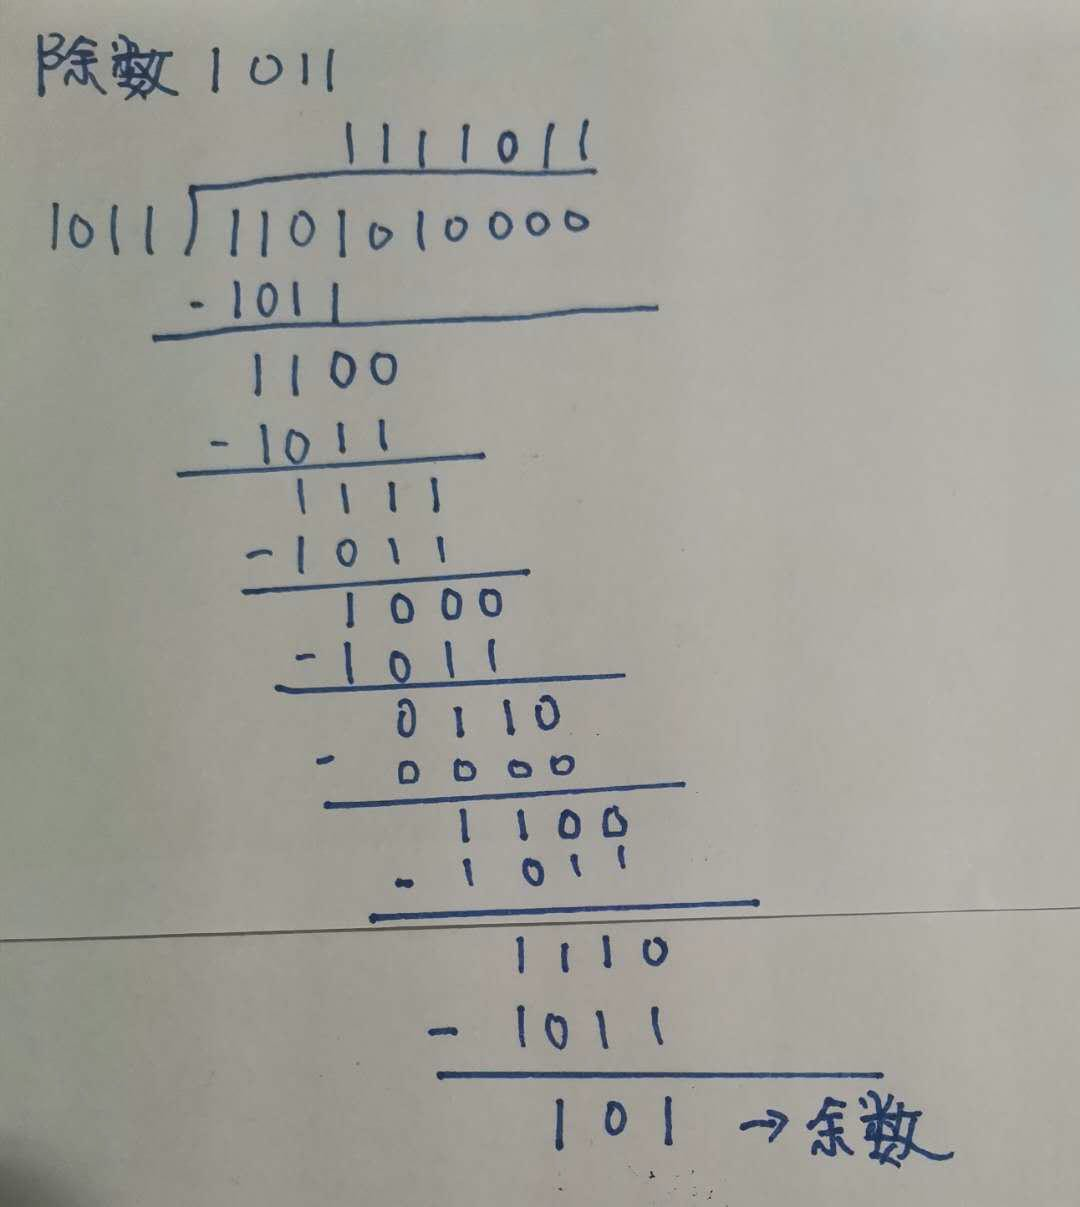 除数 1011
1111011
1011 1101010000
- 1011
1100
- 1011
1111
- 1011
1000
- 1011
0110
- 0000
1100
- 1011
1110
- 1011
101 →余数